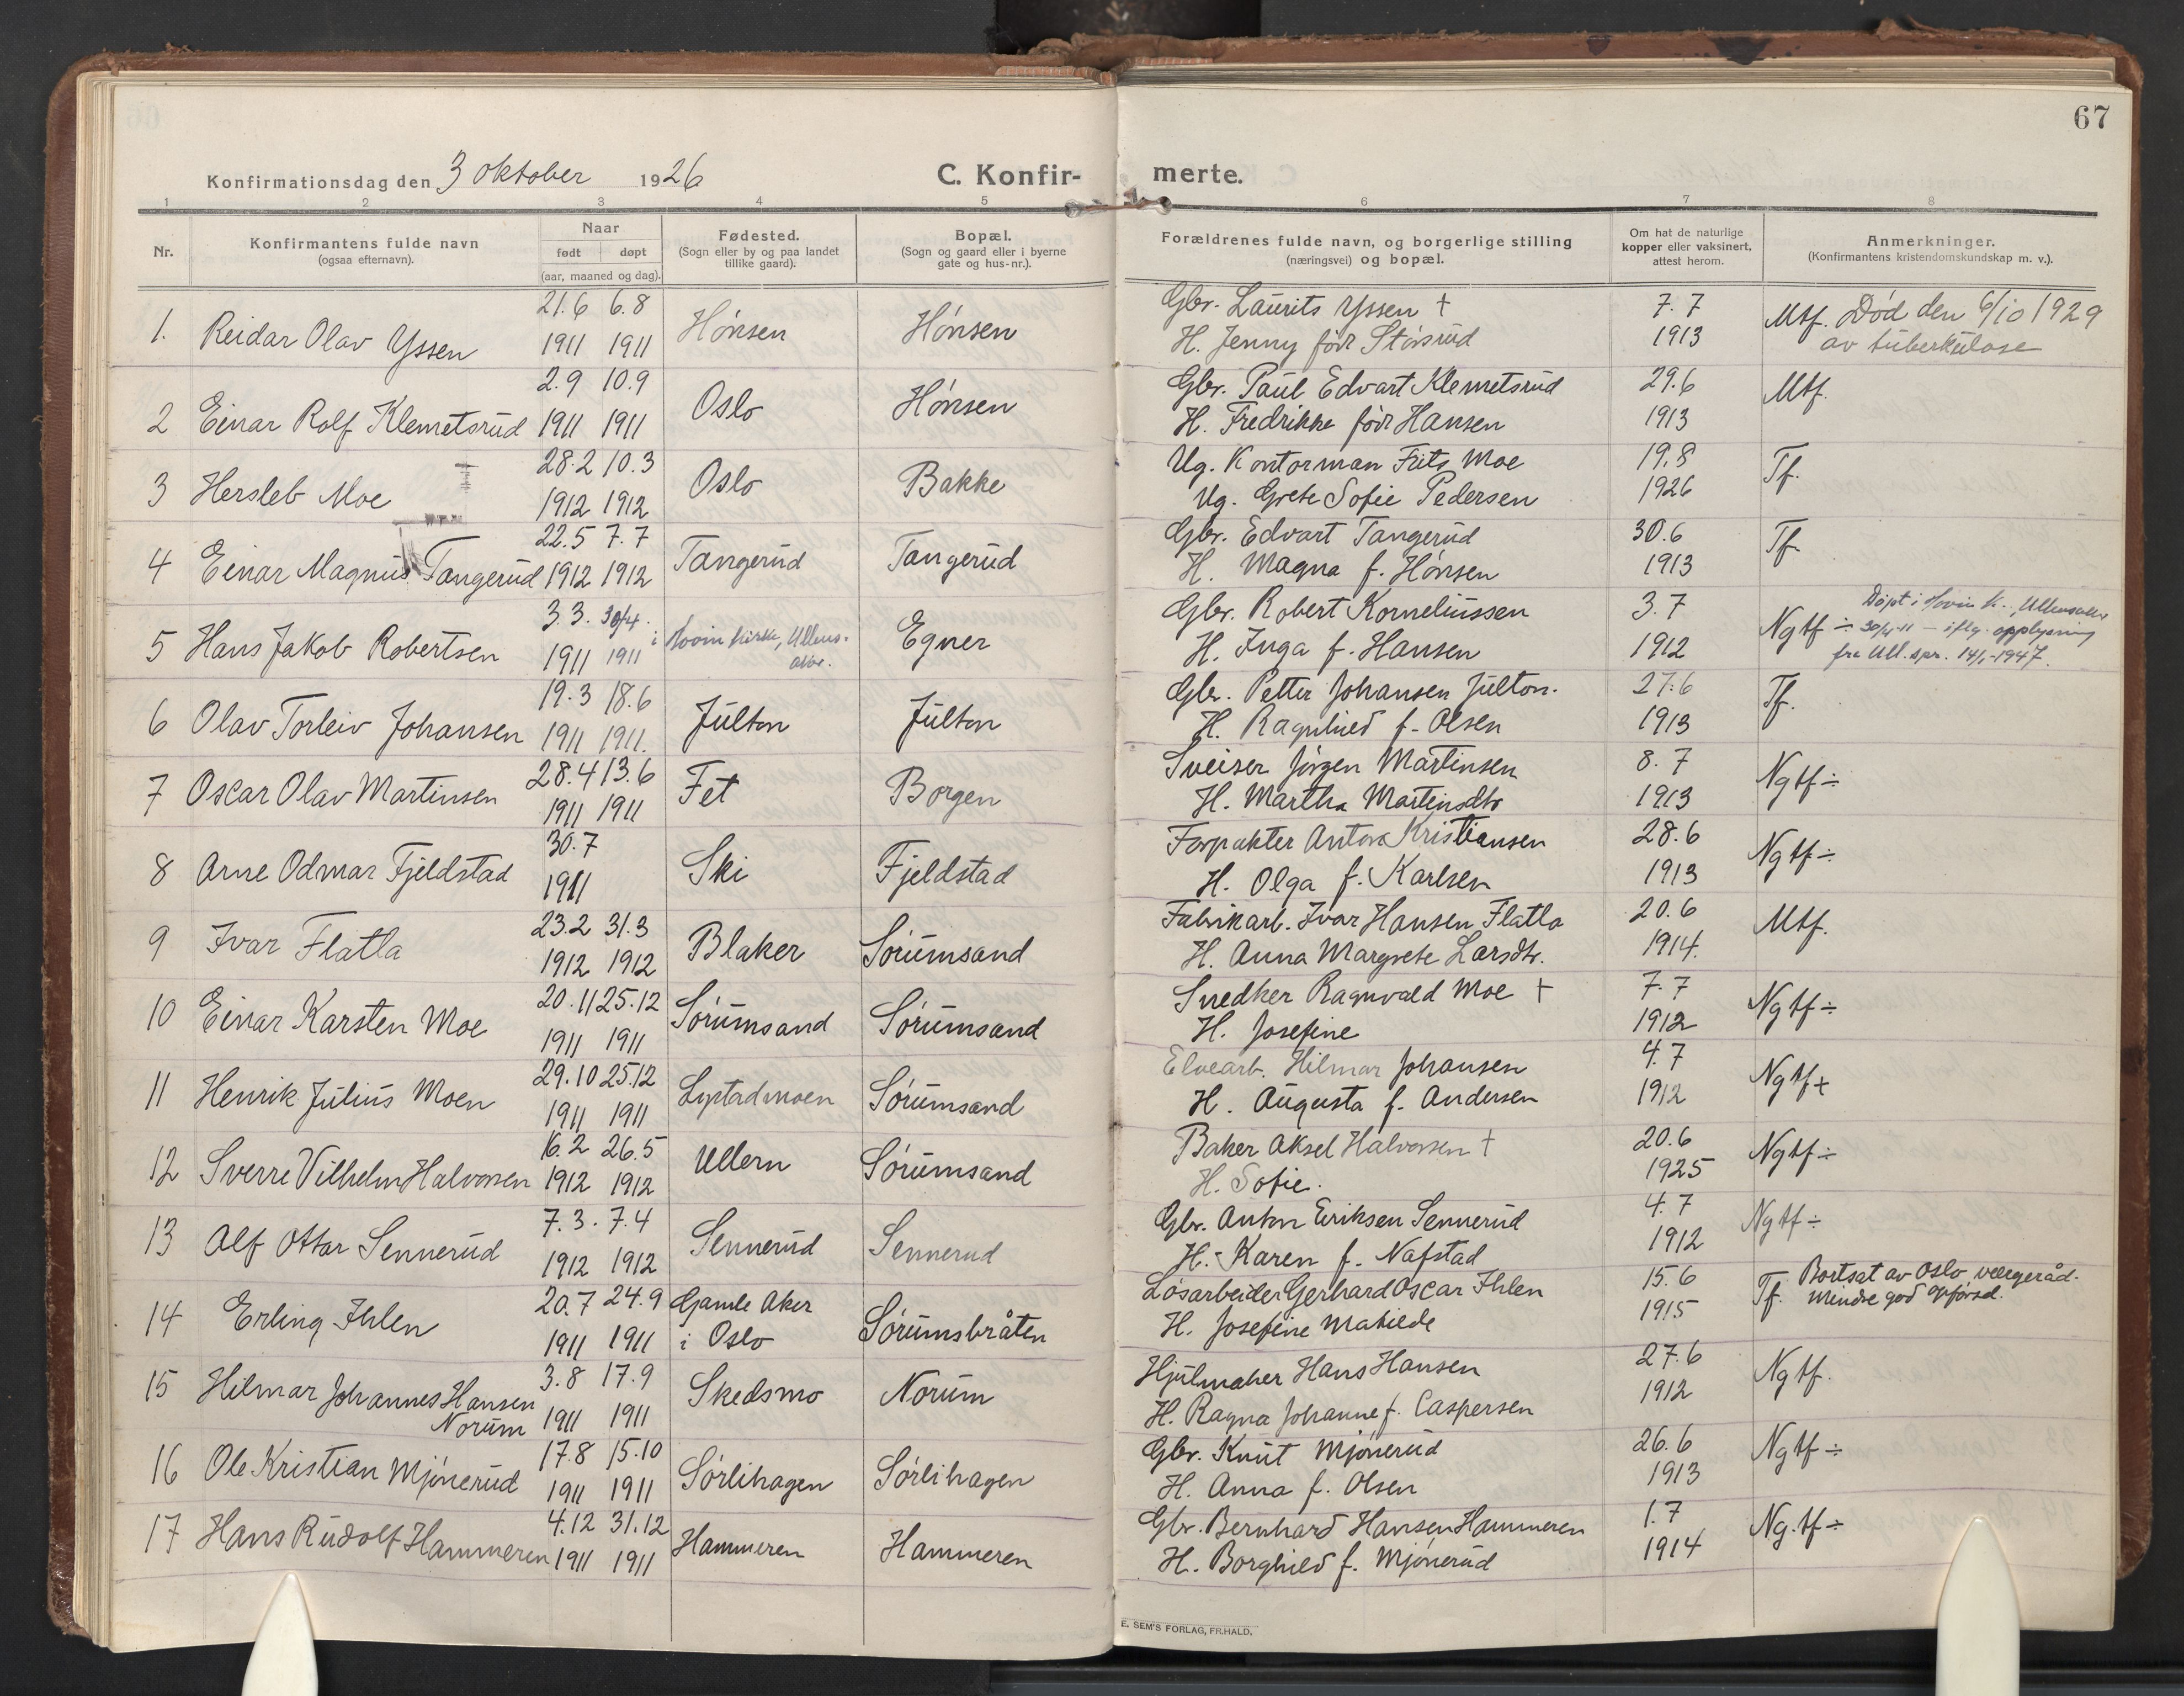 67
Konfirmationsdag den 3 oktober 1926 C. Konfir- merte.
1 2 3 4 5 6 7 8
Nr. Konfirmantens fulde navn (ogsaa efternavn). Naar født døpt (aar, maaned og dag). Fødested. (Sogn eller by og paa landet tillike gaard). Bopæl. (Sogn og gaard eller i byerne gate og hus-nr.). Forældrenes fulde navn, og borgerlige stilling (næringsvei) og bopæl. Om hat de naturlige kopper eller vaksinert, attest herom. Anmerkninger. (Konfirmantens kristendomskundskap m. v.).
21.6 6.8 Gbr. Laurits Yssen † 7.7
1. Reidar Olav Yssen 1911 1911 Hónsen Hónsen H. Jenny född Stórsrud 1913 Mtf. Död den 6/10 1929
av tuberkulose
2.9 10.9 Gbr. Paul Edvart Klemetsrud 29.6
2 Einar Rolf Klemetsrud 1911 1911 Oslo Hónsen H. Fredrikke född Hansen 1913 Mtf.
28.2 10.3 Ug. Kontorman Frits Moe 19.8
3 Hersleb Moe 1912 1912 Oslo Bakke Ug. Grete Sofie Pedersen 1926 Tf.
22.5 7.7 Gbr. Edvart Tangerud 30.6
4 Einar Magnus Tangerud 1912 1912 Tangerud Tangerud H. Magna f. Hónsen 1913 Tf.
3.3. 30/4. Gbr. Robert Korneliussen 3.7 Döpt i Hovin k., Ullensaker
5 Hans Jakob Robertsen 1911 1911 i Hovin kirke, Ullens. Egner H. Inga f. Hansen 1912 Ngtf ÷ 30/4-11 – iflg. opplysning
fra Ull. spr. 14/1-1947.
19.3 18.6 Gbr. Petter Johansen Julton. 27.6
6 Olav Torleiv Johansen 1911 1911. Julton Julton H. Ragnhild f. Olsen 1913 Tf.
28.4 13.6 Sveiser Jörgen Martinsen 8.7
7 Oscar Olav Martinsen 1911 1911 Fet Borgen H. Martha Martinsdtr 1913 Ngtf ÷
30.7 Forpakter Anton Kristiansen 28.6
8 Arne Odmar Fjeldstad 1911 Ski Fjeldstad H. Olga f. Karlsen 1913 Ngtf ÷
23.2 31.3 Fabrikarb. Ivar Hansen Flatla 20.6
9 Ivar Flatla 1912 1912 Blaker Sórumsand H. Anna Margrete Larsdtr. 1914. Mtf.
20.11 25.12 Snedker Ragnvald Moe † 7.7
10 Einar Karsten Moe 1911 1911 Sórumsand Sórumsand H. Josefine 1912 Ngtf ÷
29.10 25.12 Elvearb. Hilmar Johansen 4.7
11 Henrik Julius Moen 1911 1911 Lystadmoen Sórumsand H. Augusta f. Andersen 1912 Ngtf+
16.2 26.5 Baker Aksel Halvorsen † 20.6
12 Sverre Vilhelm Halvorsen 1912 1912 Ullern Sórumsand H. Sofie. 1925 Ngtf ÷
7.3. 7.4 Gbr. Anton Eriksen Sennerud 4.7
13 Alf Ottar Sennerud 1912 1912 Sennerud Sennerud H. Karen f. Nafstad 1912 Ngtf ÷
20.7 24.9 Gamle Aker Lösarbeider Gerhard Oscar Ihlen 15.6 Bortsat av Oslo vergeråd.
14 Erling Ihlen 1911 1911 i Oslo Sórumsbråten H. Josefine Matilde 1915 Tf. Mindre god opförsel.
3.8 17.9 Hjulmaker Hans Hansen 27.6
15 Hilmar Johannes Hansen Norum 1911 1911 Skedsmo Norum H. Ragna Johanne f. Caspersen 1912 Ngtf.
17.8 15.10 Gbr. Knut Mjönerud 26.6
16 Ole Kristian Mjönerud 1911 1911 Sórlihagen Sórlihagen H. Anna f. Olsen 1913 Ngtf ÷
4.12 31.12 Gbr. Bernhard Hansen Hammeren 1.7
17 Hans Rudolf Hammeren 1911 1911 Hammeren Hammeren H. Borghild f. Mjönerud 1914 Ng.tf ÷
E. SEM'S FORLAG, FR.HALD.